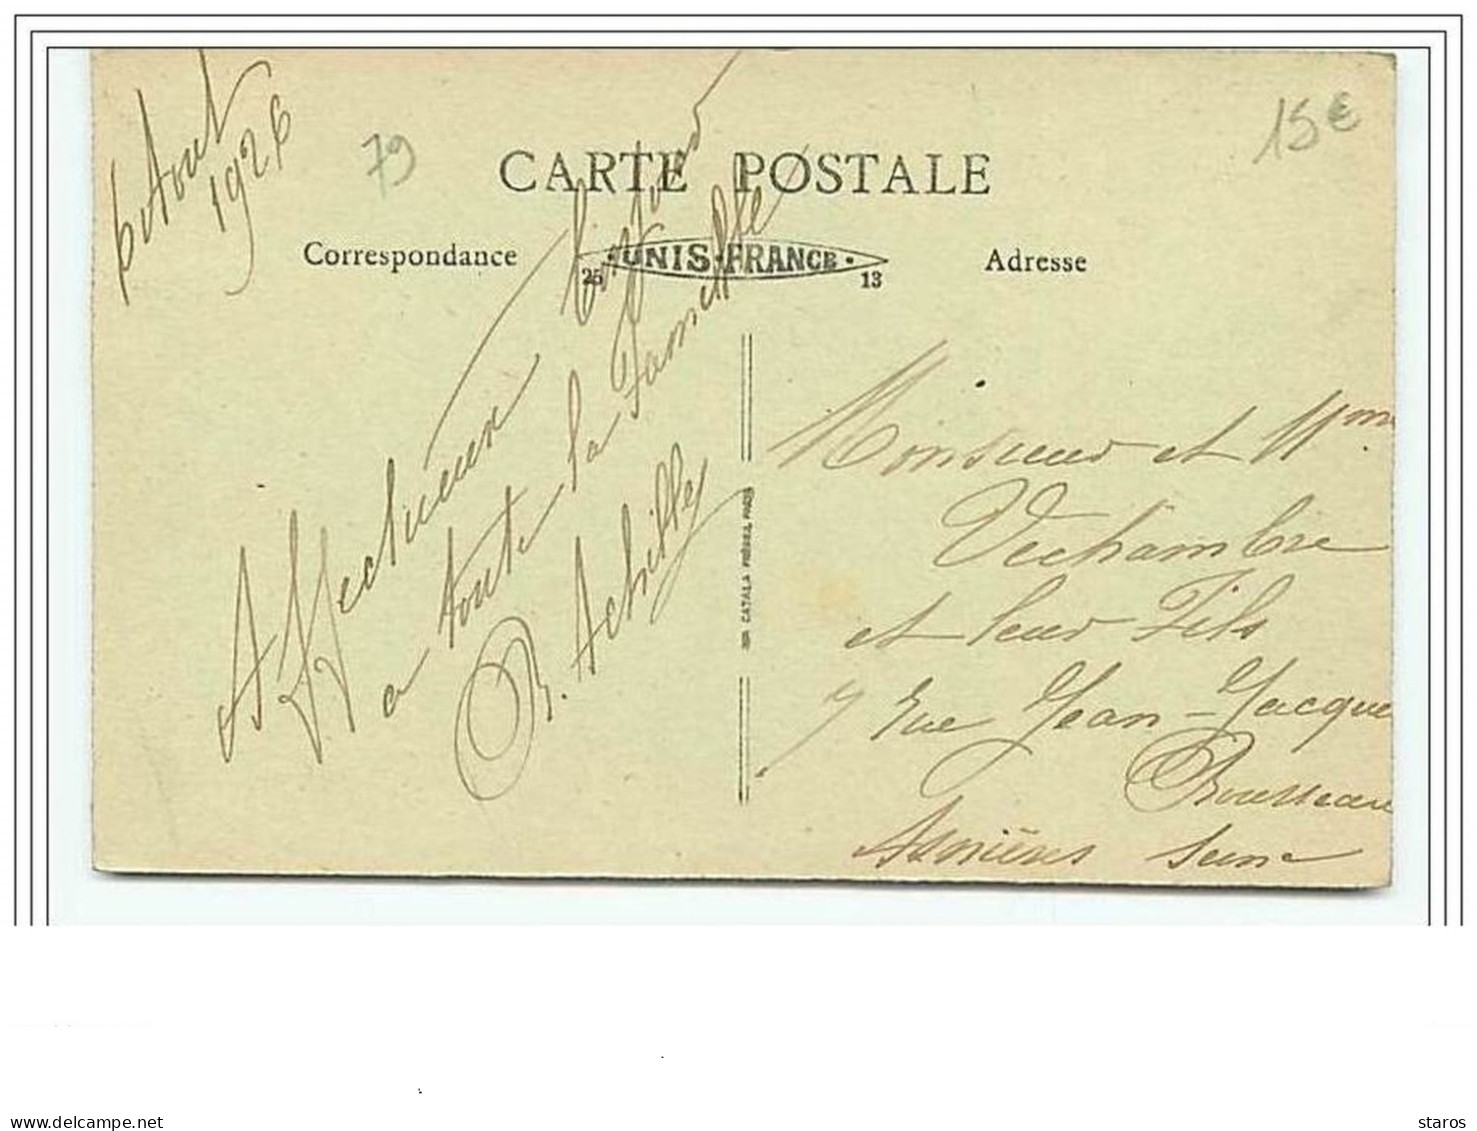 6 Aout
1926
79
15€
CARTE POSTALE
Correspondance
25 · UNIS-FRANCE · 13
Adresse
Affectueux bonjour
a toute la famille
B. Achilly
IMP. CATALA FRÈRES, PARIS
Monsieur et Mme
Vechambre
et leur Fils
7 Rue Jean-Jacque
Rousseau
Asnières Seine
staros